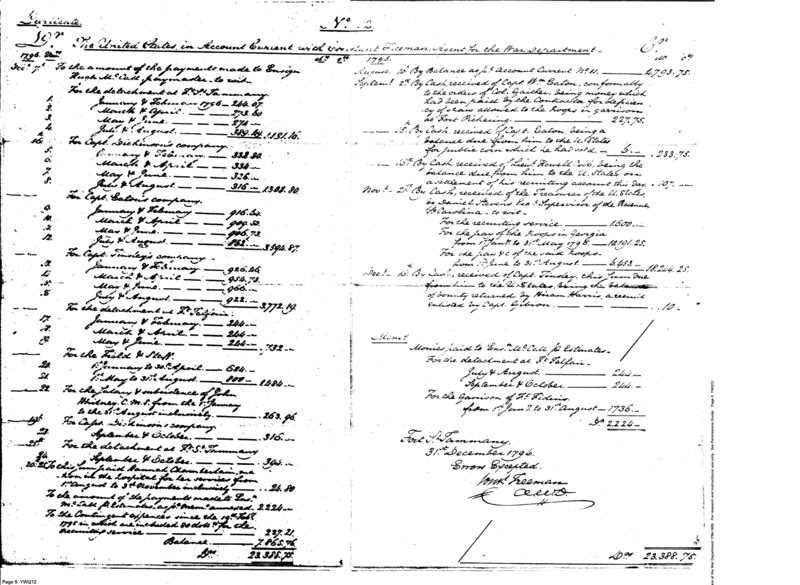 Duplicate.
No. 12.
Dr. The United States, in Account Current with Constant Freeman, Agent for the War Department. Cr.
1796.
Decr. 7. To the amount of the payments made to Ensign
Hugh McCall paymaster. to wit
For the detachment at Ft. St. Tammany
1. January & February 1796 - 244.07.
2. March & April. - 273.60
3. May & June. - 274 -
4. July & August. 1151.16.
16. For Capt. Dickinson's company.
5. January & February. - 332.80.
6. March & April - 334 -
7. May & June. - 326 -
8. July & August - 316 - 1308.80.
For Capt. Eaton's company.
9. January & February - 916.60.
10. March & April. - 909.50.
11. May & June. - 906.73.
12. July & August. - 862 - 3594.87.
For Capt. Tinsley's company.
January & February - 926.46.
March & April. - 954.73.
May & June. - 966 -
July & August. - 922 - 3772.19.
For the detachment at Ft. Telfair.
17. January & February. - 244 -
March & April - 244 -
19. May & June - 244 - 732 -
For the Field & Staff.
20. 1st January to 30th April. - 684 -
21. 1st May to 31st August - 800 - 1484 -
22. For the Salary & subsistence of John
Whitney C.M.S. from the 1st January
to the 31st August inclusively. 263.96.
For Capt. Dickinson's company.
23. September & October. - 316 -
25. For the detachment at Ft. St. Tammany
24. September & October. - 394 -
To this sum paid Hannah Chamberlain, ma
tron in the hospital for her services from
1st August to 3d November inclusively - 24.80
To the amount of the payments made to Ens.
McCall for Estimates, as pr. Memo. annexed. 2224 -
To the Contingent expences since the 19th Feby.
1795 in which are included 20 dolls. for the
recruiting service 227.21.
Balance 7.865.76
Drs. 23.388.75.
1795.
August. 10. By Balance as pr. Account Current No. 11. 4,793.75.
Septemr. 2d. By Cash received of Capt. Wm. Eaton, conformably
to the orders of Col. Gaither, being money which
had been paid by the Contractor for deficien
cy of rations allowed to the troops in garrison
at Fort Pickering. 227.75.
15. By Cash received of Capt. Eaton, being a
balance due from him to the U. States
for public corn which he had sold. - 6 - 233.75.
15th. By Cash received of Lieut. Howell Cobb, being the
balance due from him to the U. States on
a settlement of his recruiting account this day. 107. -
Novr. 21st. By Cash, received of the Treasurer of the U. States,
by Daniel Stevens Esqr. Supervisor of the Revenue
So. Carolina. to wit.
For the recruiting service. - 1600 -
For the pay of the troops in Georgia
from 1st Jany. to 31st May 1796. - 10.191.25.
For the pay & c of the said troops.
from 1st June to 31st August - 6.453 - 18.244.25.
Decr. 16. By Cash, received of Capt. Tinsley, this sum due
from him to the U. States, being the balance
of bounty returned by Hiram Harris, a recruit
enlisted by Capt. Gibson. 10. -
Memo.
Monies paid to Ens. McCall for Estimates.
For the detachment at Ft. Telfair.
July & August. 244 -
September & October. 244. -
For the Garrison of Ft. Fidius.
from 1st Jany. to 31st August - 1736 -
Drs. 2224 -
Fort St. Tammany.
31st December 1796.
Errors Excepted.
Const. Freeman
Drs. 23.388.75.
Page 5 YWQ12